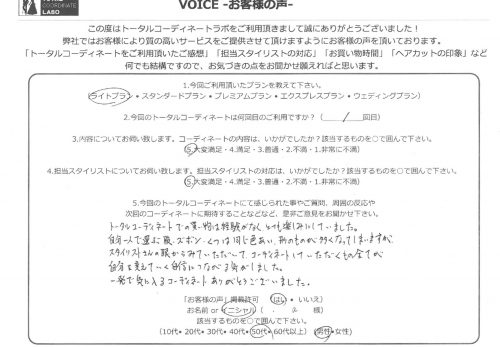 COORDINATE
LABO
VOICE -お客様の声-
この度はトータルコーディネートラボをご利用頂きまして誠にありがとうございました！
弊社ではお客様により質の高いサービスをご提供させて頂けますようにお客様の声を頂いております。
「トータルコーディネートをご利用いただいたご感想」「担当スタイリストの対応」「お買い物時間」「ヘアカットの印象」など
何でも結構ですので、お気づきの点をお聞かせ願えればと思います。
1.今回ご利用頂いたプランを教えて下さい。
(ライトプラン・スタンダードプラン・プレミアムプラン・エクスプレスプラン・ウェディングプラン)
2.今回のトータルコーディネートは何回目のご利用ですか？( 1 /回目)
3.内容についてお伺い致します。コーディネートの内容は、いかがでしたか？該当するものを○で囲んで下さい。
(5.大変満足・4.満足・3.普通・2.不満・1.非常に不満)
4.担当スタイリストについてお伺い致します。担当スタイリストの対応は、いかがでしたか？該当するものを○で囲んで下さい。
(5.大変満足・4.満足・3.普通・2.不満・1.非常に不満)
5.今回のトータルコーディネートにて感じられた事やご質問、周囲の反応や
次回のコーディネートに期待することなどなど、是非ご意見をお聞かせ下さい。
トータルコーディネートでの買い物は経験がなくとても楽しみにしていました。
自分一人で選ぶと服、ズボン、くつは同じ色あい、形のものが多くなってしまいますが、
スタイリストさんの眼からみていただいて、コーディネートしていただくとその全てが
自分を変えていく自信につながる気がしました。
一発で気に入るコーディネートありがとうございました。
「お客様の声」掲載許可 (はい・いいえ)
お名前 or イニシャル ( . 様)
該当するものを○で囲んで下さい。
(10代・20代・30代・40代・50代・60代以上) (男性・女性)